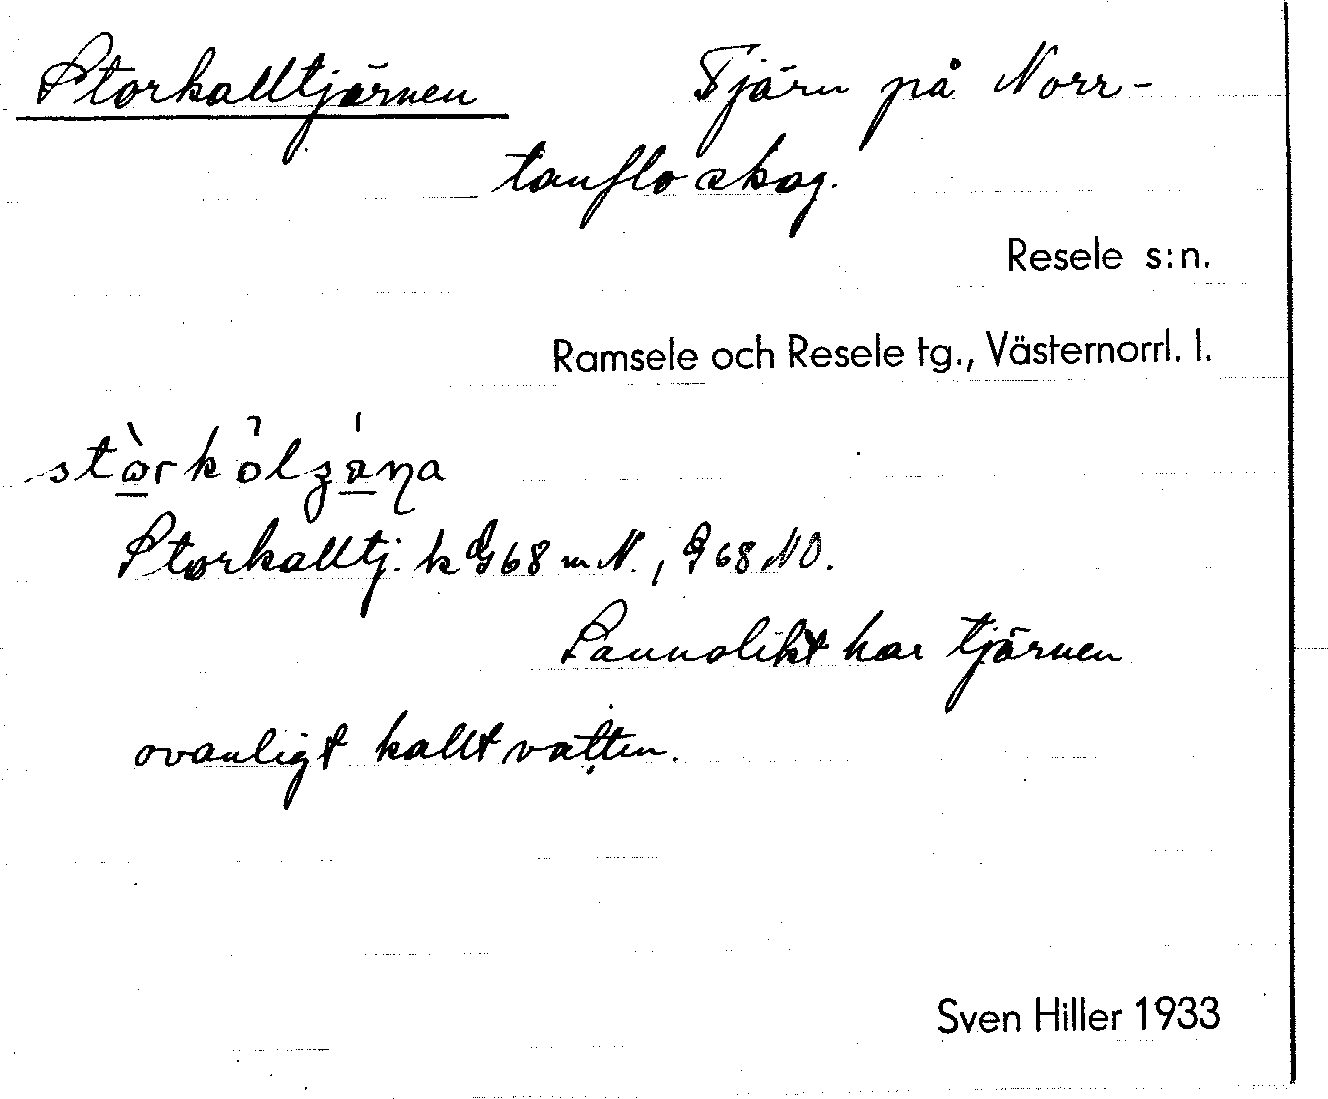 Storkalltjärnen Tjärn på Norr-
tanflo skog.
Resele s:n.
Ramsele och Resele tg., Västernorrl. l.
Storkalltj. k G 68 m N., G 68 NO.
Sannolikt har tjärnen
ovanligt kallt vatten.
Sven Hiller 1933